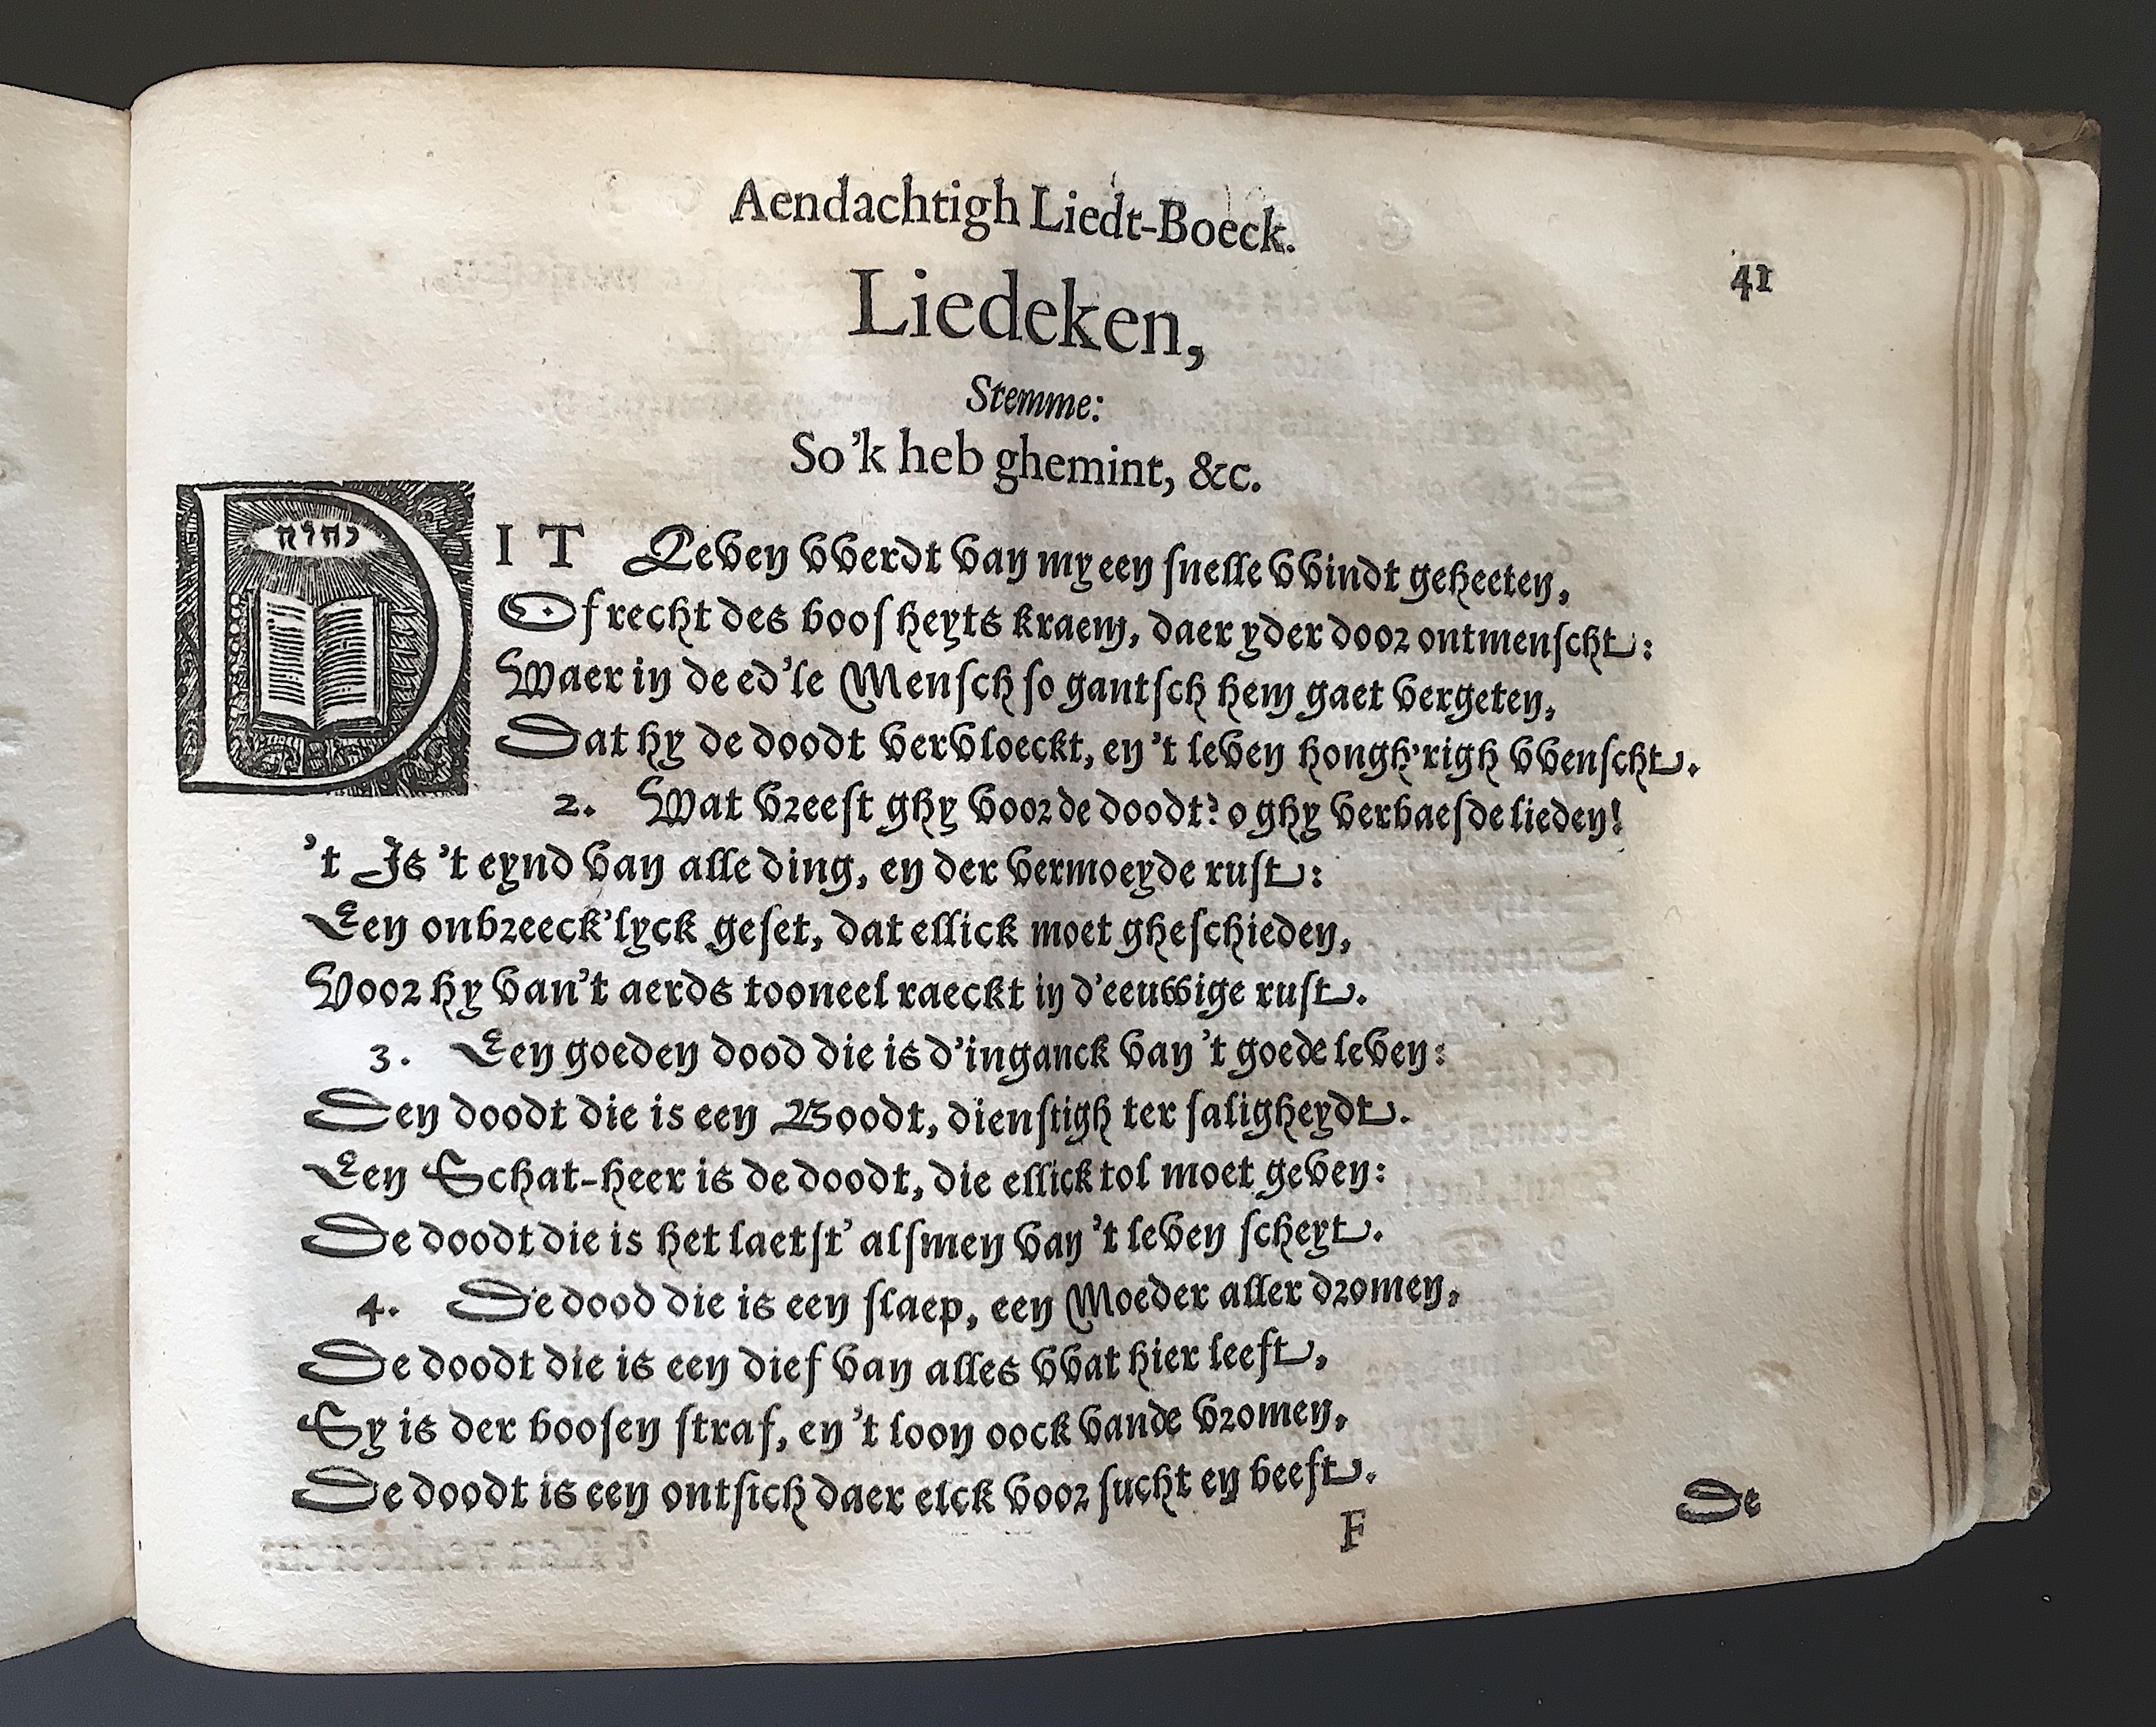 Aendachtigh Liedt-Boeck.
41
Liedeken,
Stemme:
So 'k heb ghemint, &c.
יהוה
DIT Leven vverdt van my een snelle vvindt geheeten,
Of recht des boosheyts kraem, daer yder door ontmenscht:
Waer in de ed'le Mensch so gantsch hem gaet vergeten,
Dat hy de doodt vervloeckt, en 't leven hongh'righ vvenscht.
2. Wat vreest ghy voor de doodt? o ghy verbaesde lieden!
't Is 't eynd van alle ding, en der vermoeyde rust:
Een onbreeck'lyck geset, dat ellick moet gheschieden,
Voor hy van't aerds tooneel raeckt in d'eeuwige rust.
3. Een goeden dood die is d'inganck van 't goede leven:
Den doodt die is een Boodt, dienstigh ter saligheydt.
Een Schat-heer is de doodt, die ellick tol moet geven:
De doodt die is het laetst' alsmen van 't leven scheyt.
4. De dood die is een slaep, een Moeder aller dromen,
De doodt die is een dief van alles vvat hier leeft,
Sy is der boosen straf, en 't loon oock vande vromen,
De doodt is een ontsich daer elck voor sucht en beeft.
F
De